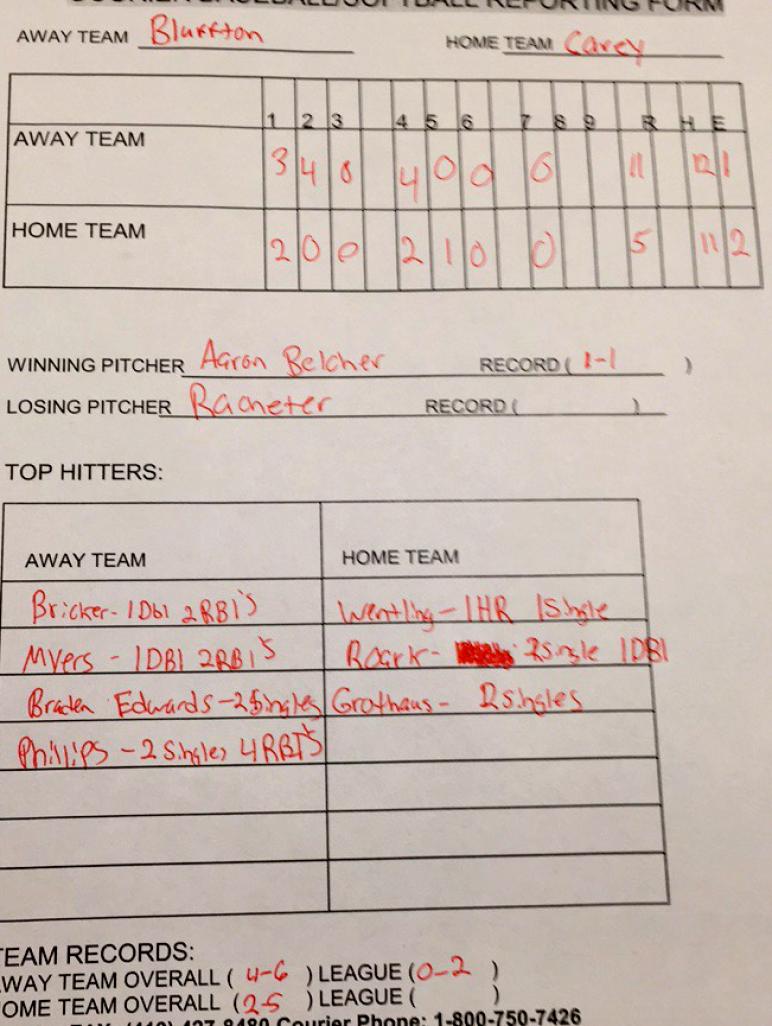 COURIER BASEBALL/SOFTBALL REPORTING FORM
AWAY TEAM Bluffton HOME TEAM Carey
1 2 3 4 5 6 7 8 9 R H E
AWAY TEAM 3 4 0 4 0 0 0 11 12 1
HOME TEAM 2 0 0 2 1 0 0 5 11 2
WINNING PITCHER Aaron Belcher RECORD ( 1-1 )
LOSING PITCHER Racheter RECORD ( )
TOP HITTERS:
AWAY TEAM HOME TEAM
Bricker- 1Dbl 2RBI's Wentling - 1HR 1Single
Myers - 1DBl 2RBI's Roark- 2Single 1DBl
Braden Edwards - 2Singles Grothaus - 2singles
Phillips - 2 Singles 4RBI's
TEAM RECORDS:
AWAY TEAM OVERALL ( 4-6 ) LEAGUE (0-2 )
HOME TEAM OVERALL (2-5 ) LEAGUE ( )
8480 Courier Phone: 1-800-750-7426